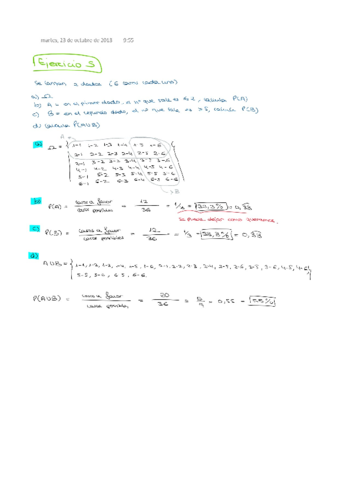 martes, 23 de octubre de 2013 9:55
Ejercicio 5
Se lanzan 2 dados (6 caras cada uno)
a) Ω
b) A = en el primer dado, el nº que sale es ≤ 2, calcula P(A)
c) B = en el segundo dado, el nº que sale es ≥ 5, calcula P(B)
d) Calcula P(A∪B)
A
a) Ω = { 1-1 1-2 1-3 1-4 1-5 1-6
2-1 2-2 2-3 2-4 2-5 2-6
3-1 3-2 3-3 3-4 3-5 3-6
4-1 4-2 4-3 4-4 4-5 4-6
5-1 5-2 5-3 5-4 5-5 5-6
6-1 6-2 6-3 6-4 6-5 6-6 }
B
b) P(A) = casos a favor / casos posibles = 12 / 36 = 1/3 = 33,3% = 0,33
se puede dejar como
c) P(B) = casos a favor / casos posibles = 12 / 36 = 1/3 = 33,3% = 0,33
d)
P(A∪B) = casos a favor / casos posibles = 20 / 36 = 5 / 9 = 0,55 = 55%